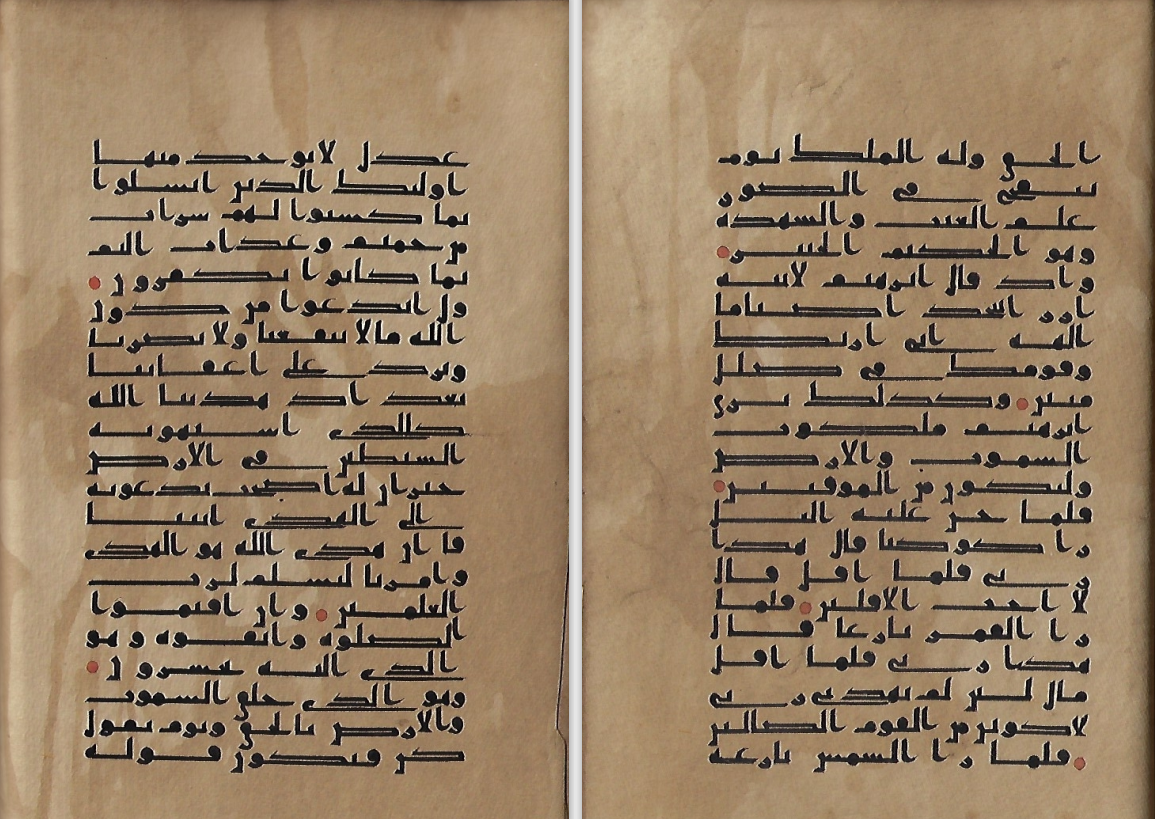 عدل لا يوخذ منها
اولئك الذين ابسلوا
بما كسبوا لهم شراب
من حميم وعذاب اليم
بما كانوا يكفرون
قل اندعوا من دون
الله ما لا ينفعنا ولا يضرنا
ونرد على اعقابنا
بعد اذ هدينا الله
كالذي استهوته
الشيطين في الارض
حيران له اصحب يدعونه
الى الهدى ائتنا
قل ان هدى الله هو الهدى
وامرنا لنسلم لرب
العلمين وان اقيموا
الصلوة واتقوه وهو
الذي اليه تحشرون
وهو الذي خلق السموت
والارض بالحق ويوم يقول
كن فيكون قوله
الحق وله الملك يوم
ينفخ في الصور
علم الغيب والشهدة
وهو الحكيم الخبير
واذ قال ابرهيم لابيه
ازر اتتخذ اصناما
الهة اني اريك
وقومك في ضلل
مبين وكذلك نري
ابرهيم ملكوت
السموت والارض
وليكون من الموقنين
فلما جن عليه اليل
را كوكبا قال هذا
ربي فلما افل قال
لا احب الافلين فلما
را القمر بازغا قال
هذا ربي فلما افل
قال لئن لم يهدني ربي
لاكونن من القوم الضالين
فلما را الشمس بازغة